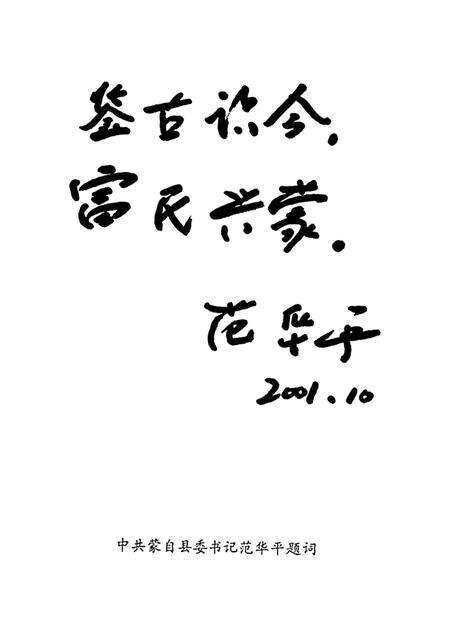 鉴古识今，
富民兴蒙。
范华平
2001.10
中共蒙自县委书记范华平题词